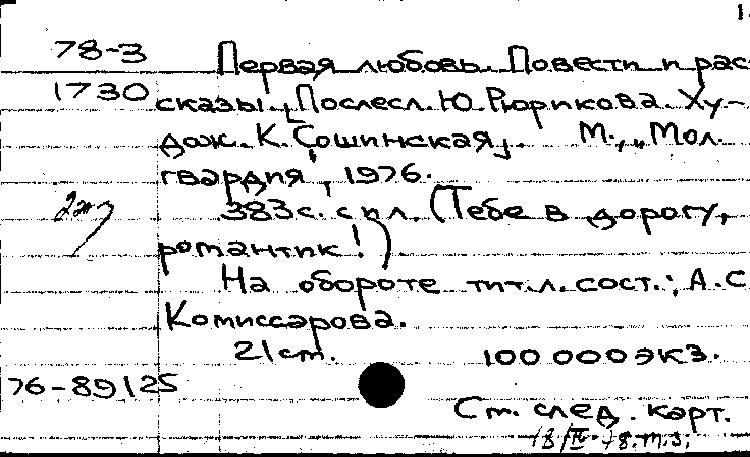 1.
78-3 Первая любовь. Повести и рас-
1730 сказы. [Послесл. Ю. Рюрикова. Ху-
дож. К. Сошинская]. М., „Мол.
гвардия", 1976.
2экз 383 с. с ил. (Тебе в дорогу,
романтик!)
На обороте тит. л. сост.: А. С.
Комиссарова.
21 cm. 100 000 экз.
76-89125
Ст. след. карт.